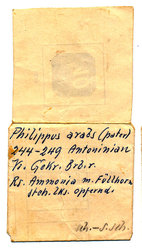 Philippus arabs (pater)
244-249 Antoninian
Vs. Gekr. Brb. r.
Rs. Ammonia m. Füllhorn
steh. lks. opfernd.
sch.-s.sch.